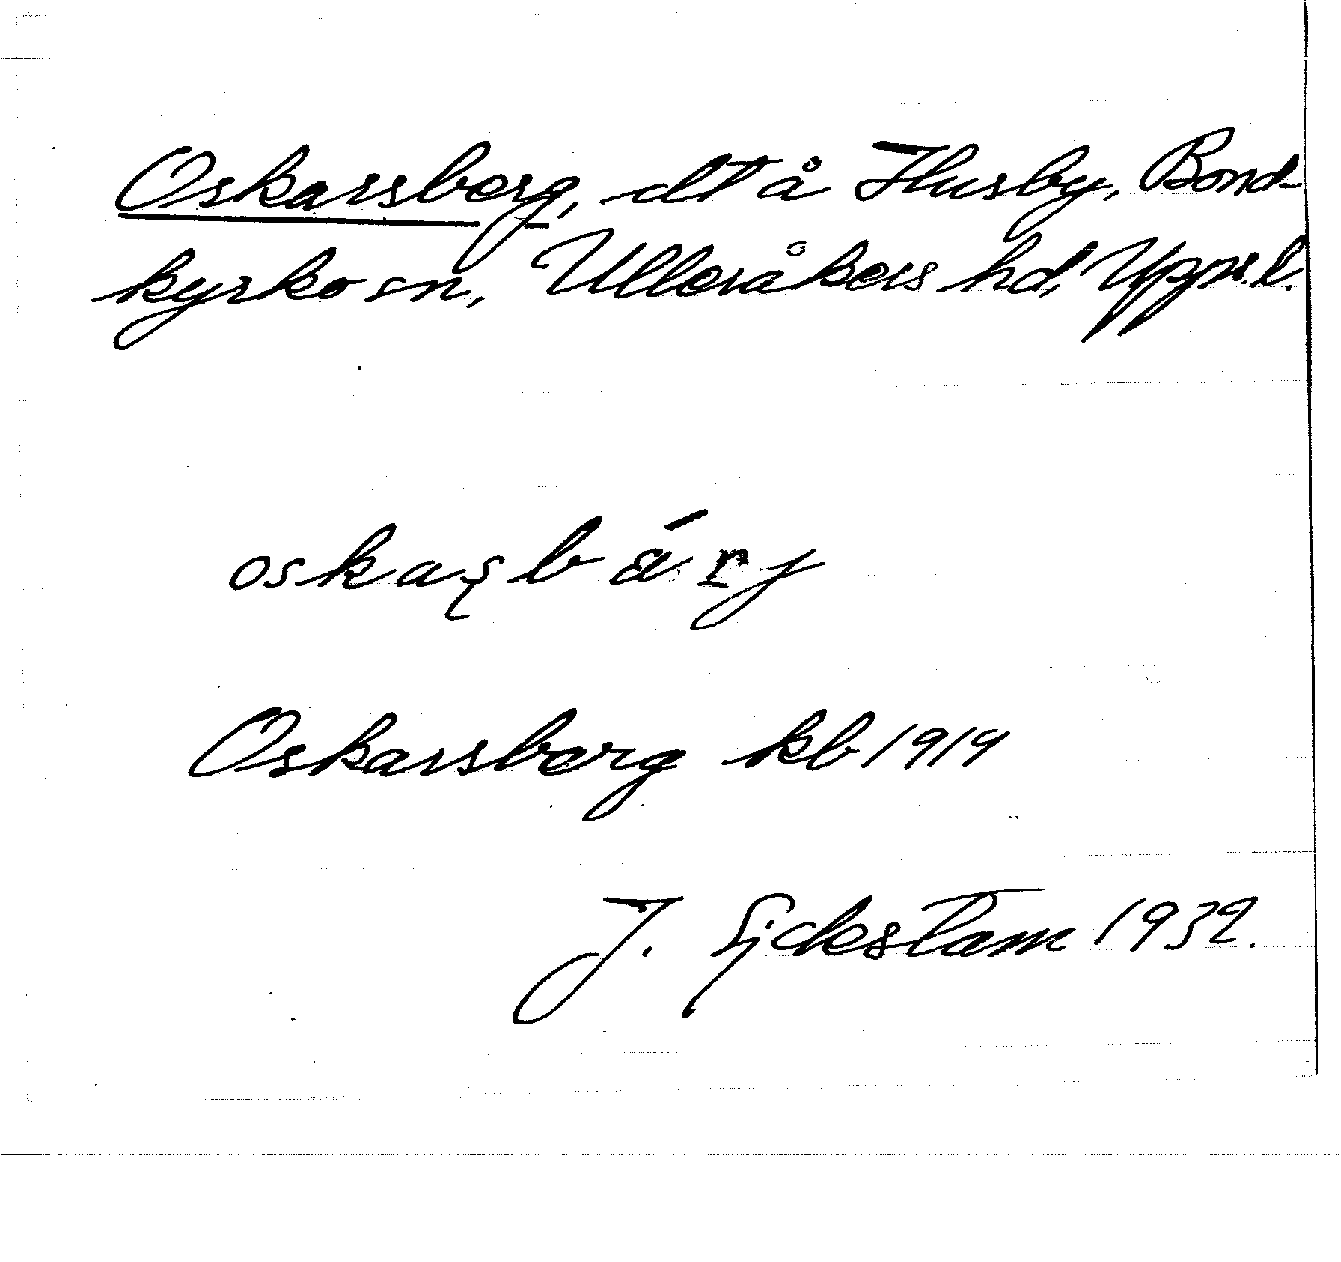 Oskarsberg, dt å Husby, Bond-
kyrko sn, Ulleråkers hd, Uppl.
oskaʂbárj
Oskarsberg kb 1919
J. Sjckstam 1932.